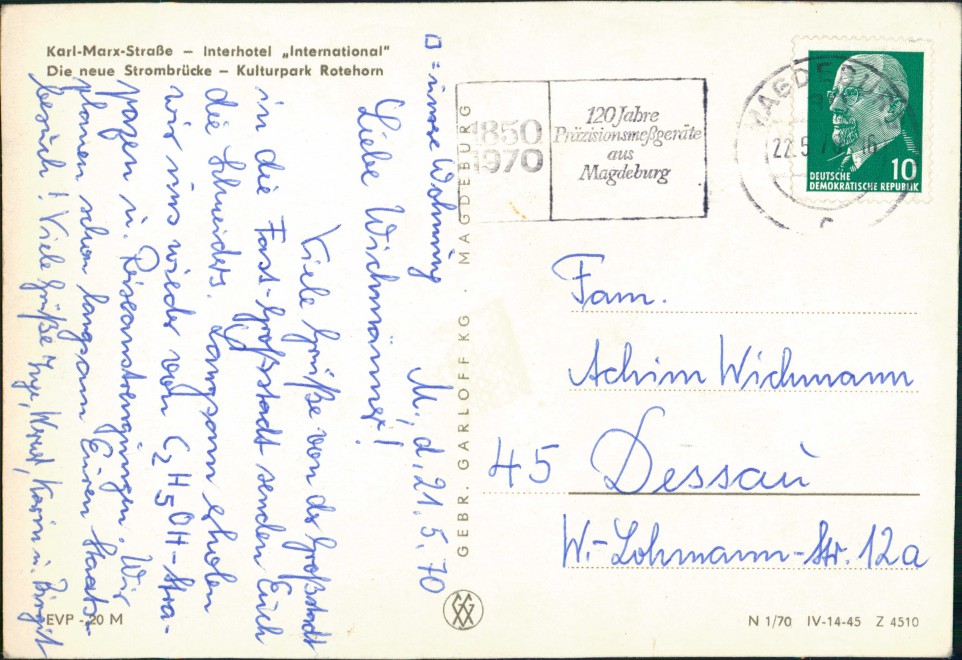 Karl-Marx-Straße – Interhotel „International"
Die neue Strombrücke – Kulturpark Rotehorn
□ = unsere Wohnung M., d. 21.5.70
Liebe Wichmänner!
Viele Grüße von der Großstadt
in die Fast-Großstadt senden Euch
die Schneiders. Langsam erholen
wir uns wieder von C₂H₅OH-Stra-
pazen u. Reiseanstrengungen. Wir
planen schon langsam Euren Staats-
besuch! Viele Grüße Inge, Karin u. Birgit
EVP -20 M
GEBR. GARLOFF KG · MAGDEBURG
1850
1970
120 Jahre
Präzisionsmeßgeräte
aus
Magdeburg
MAGDEBURG
22.5.70
DEUTSCHE
DEMOKRATISCHE REPUBLIK
10
Fam.
Achim Wichmann
45 Dessau
W.-Lohmann-Str. 12a
N 1/70 IV-14-45 Z 4510